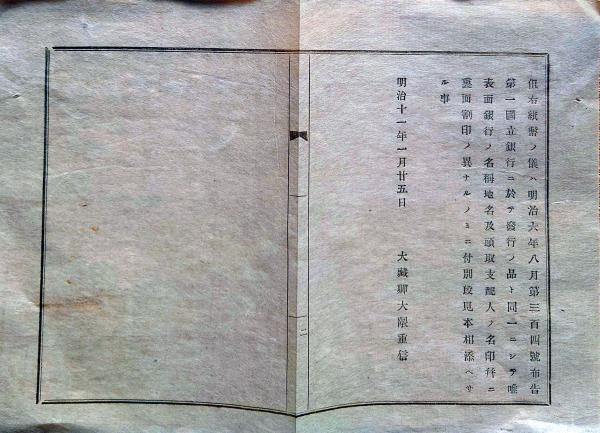 但右紙幣ノ儀ハ明治六年八月第三百四號布告
第一國立銀行ニ於テ發行ノ品ト同一ニシテ唯
表面銀行ノ名稱地名及頭取支配人ノ名印并ニ
裏面割印ノ異ナルノミニ付別段見本相添ヘサ
ル事
明治十一年一月廿五日
大藏卿大隈重信
二